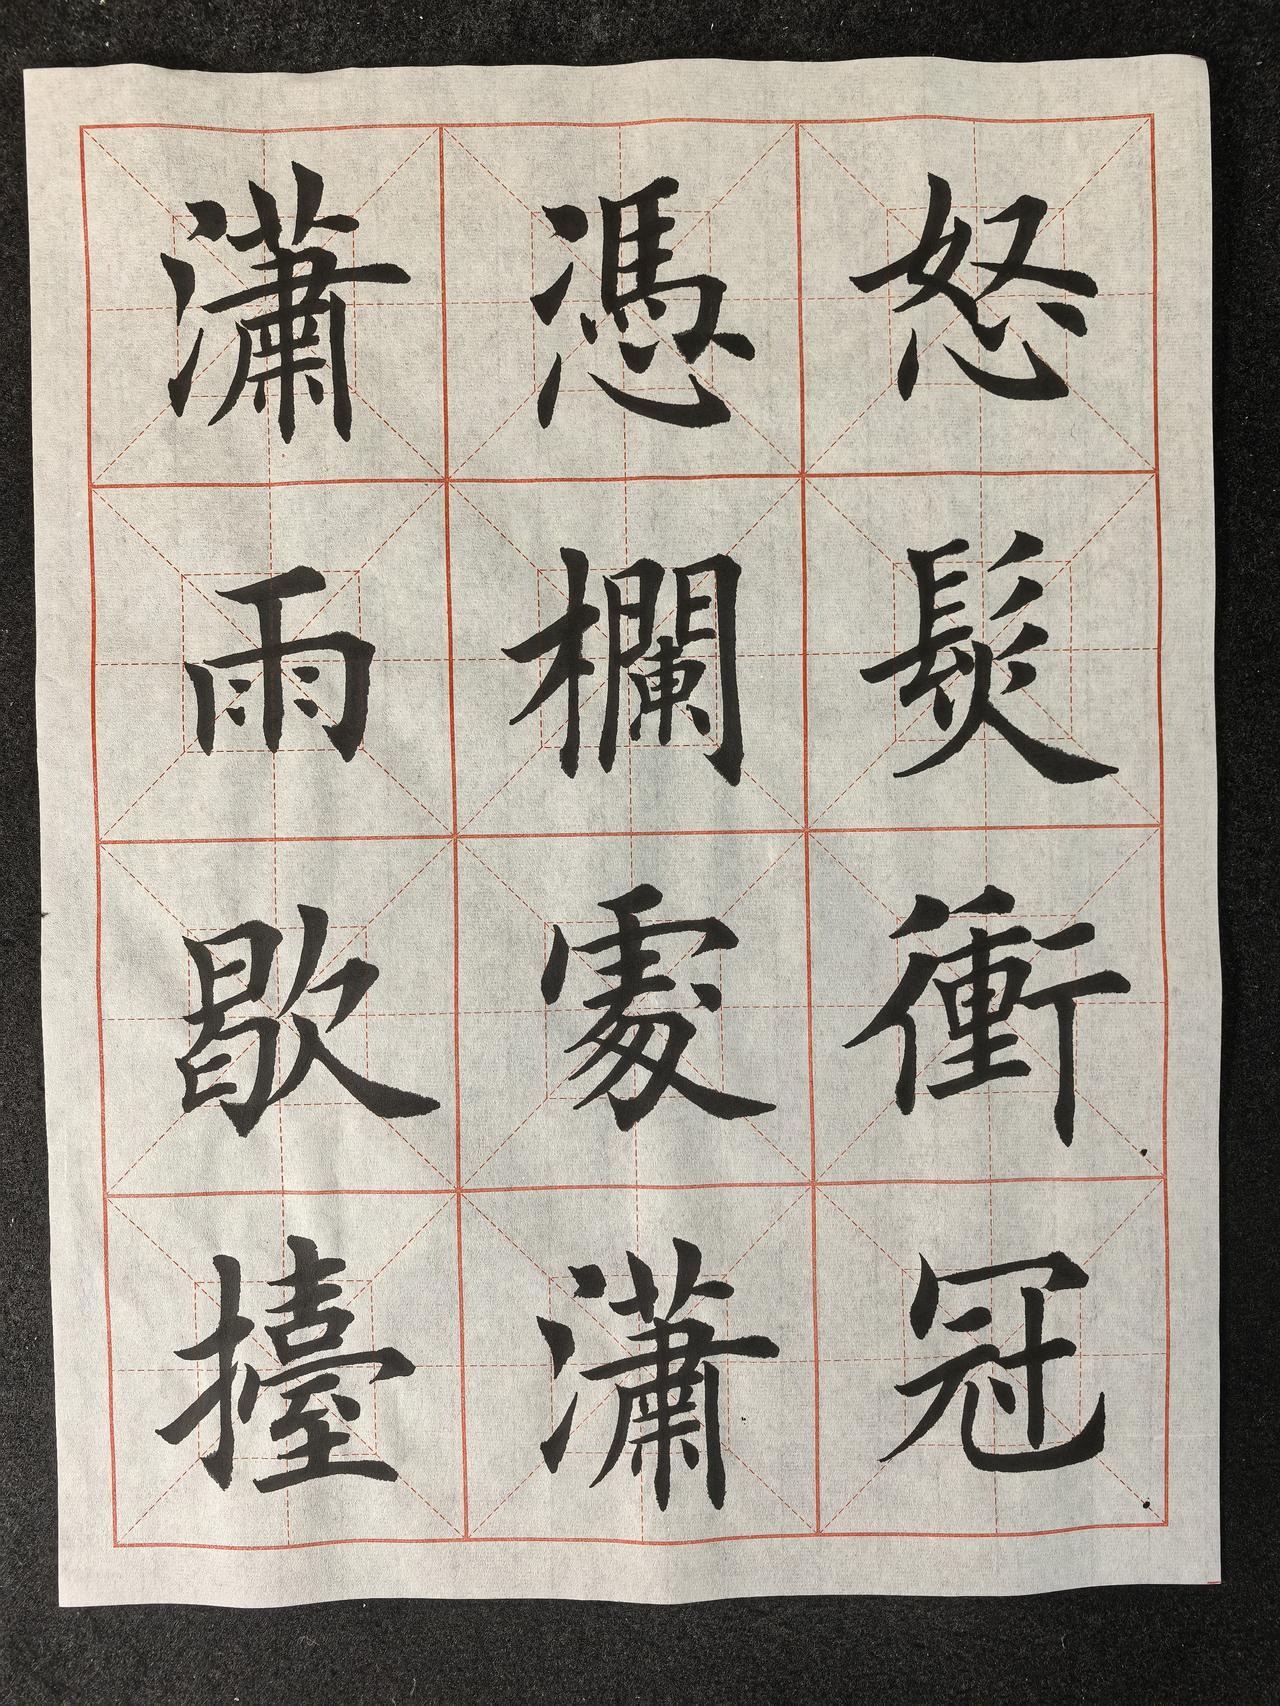 怒髮衝冠
憑欄處瀟
瀟雨歇擡